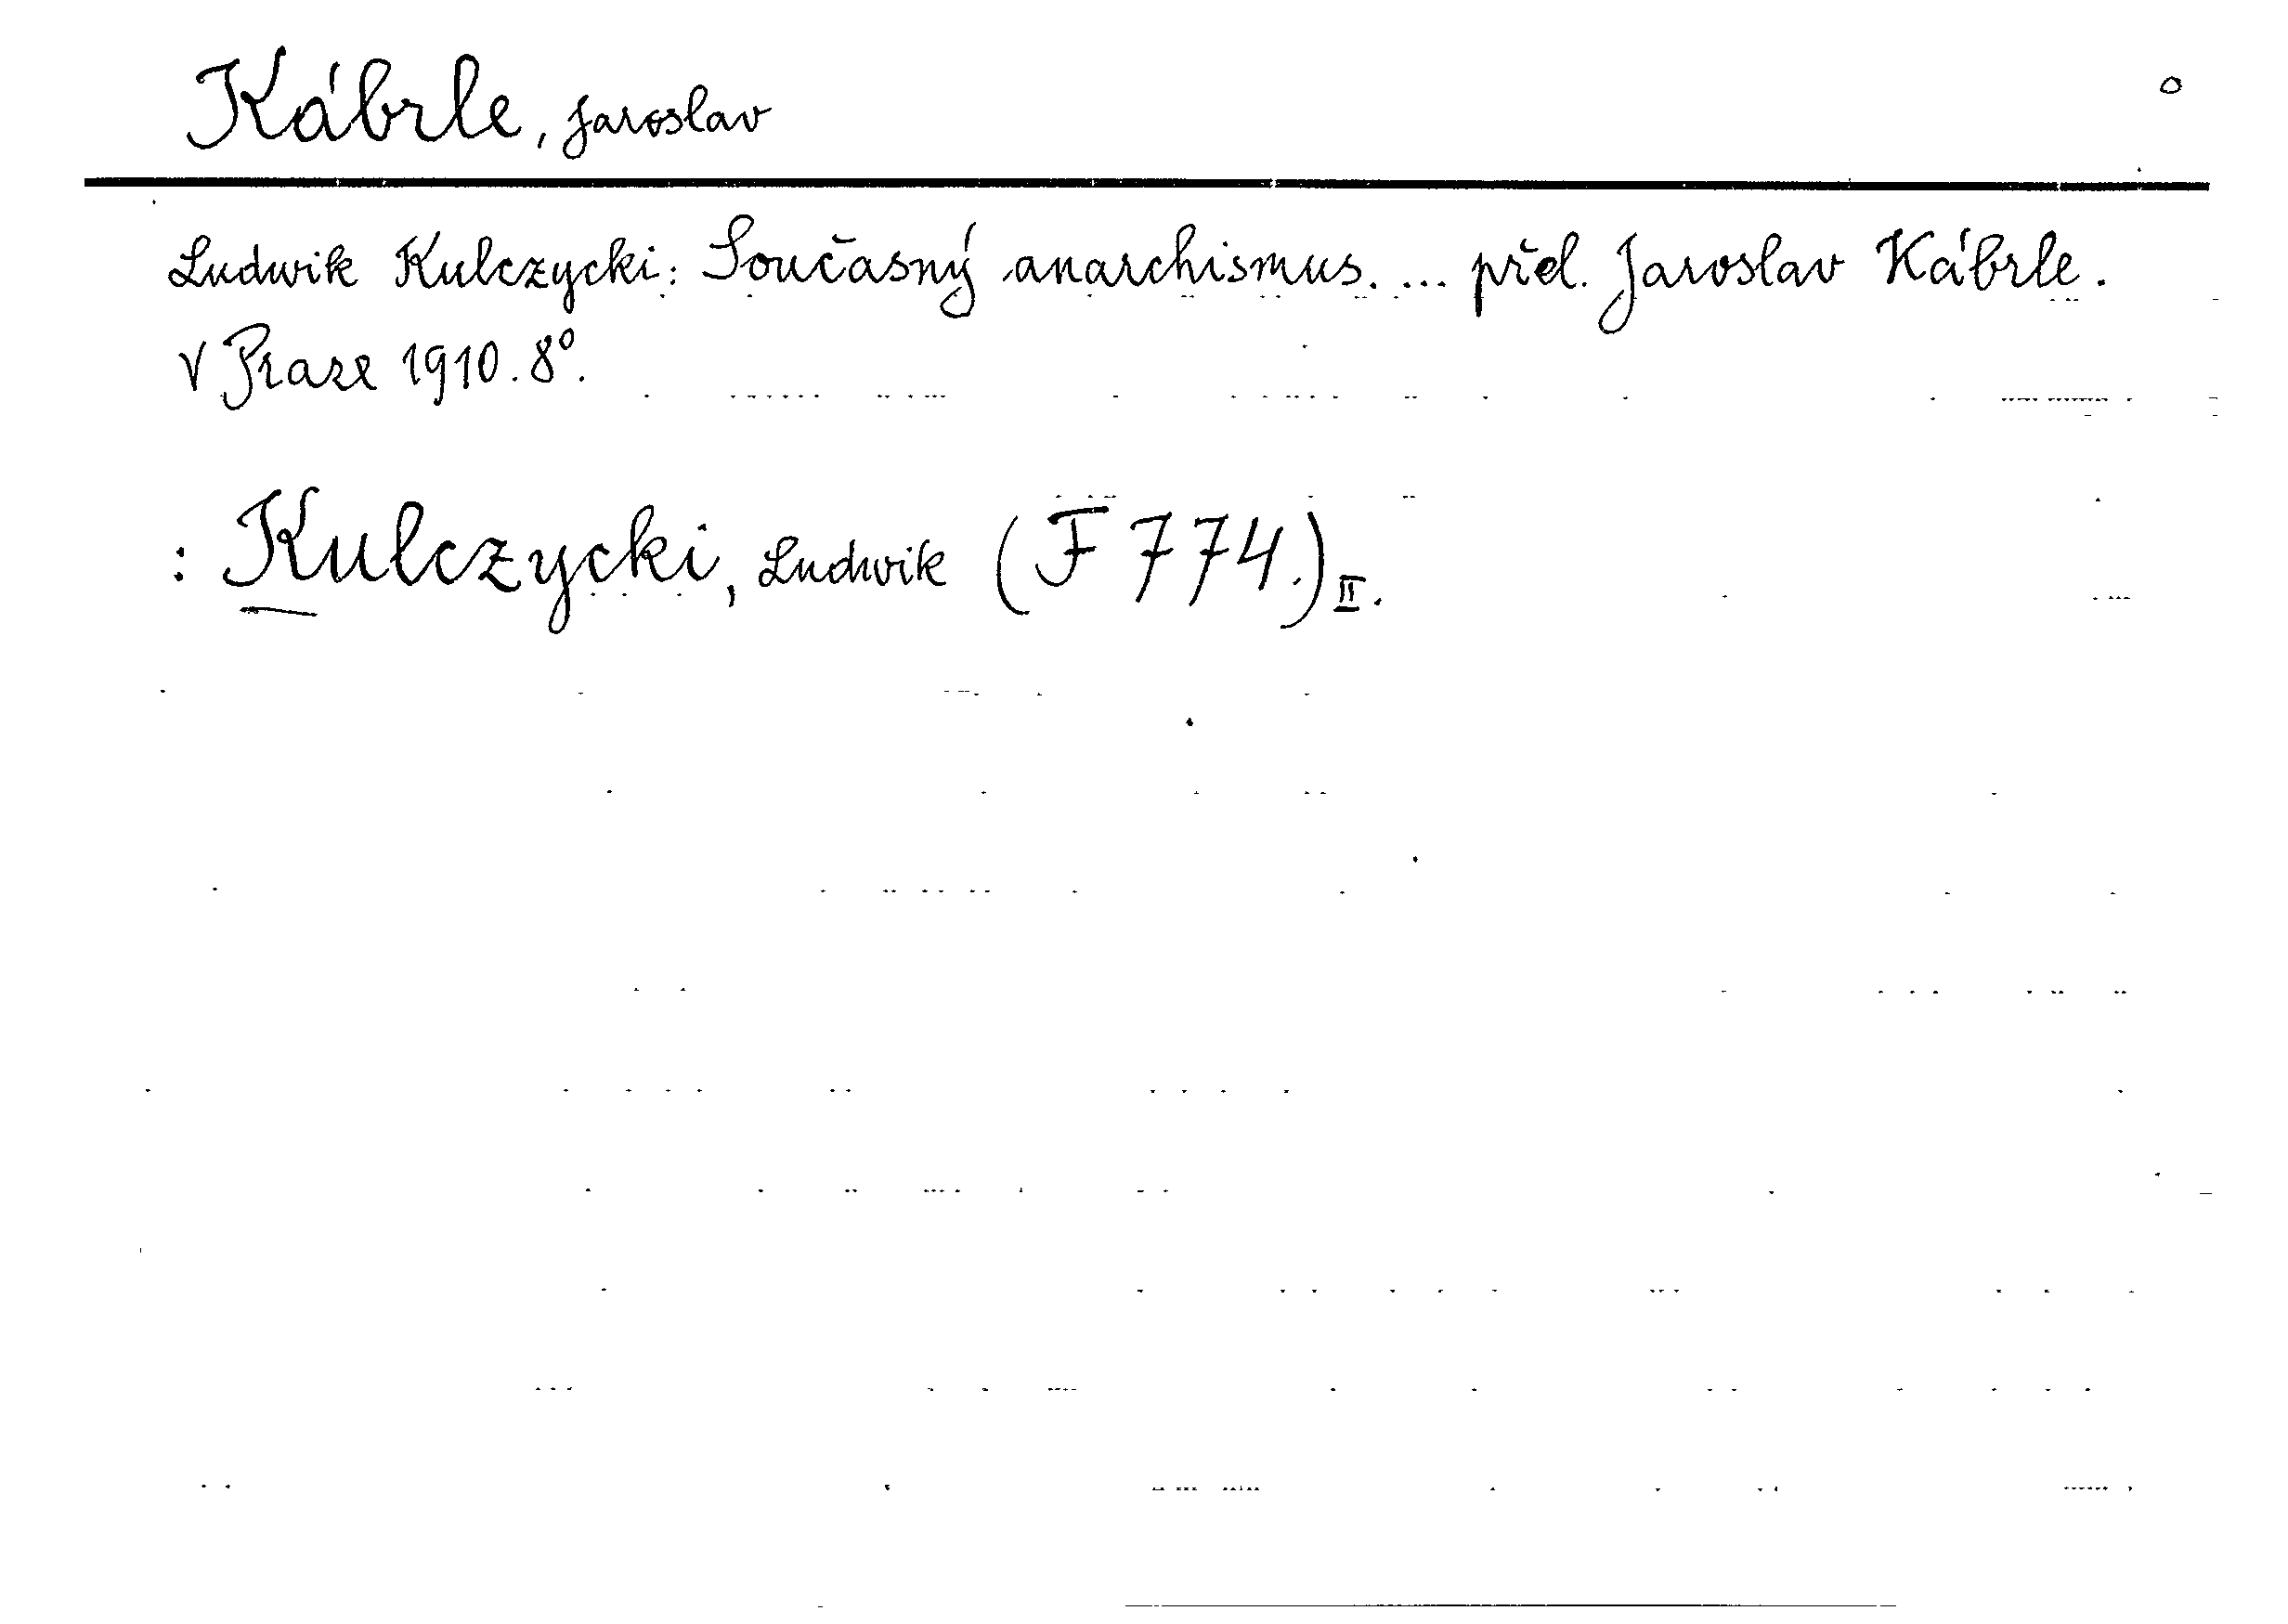 Kábrle, Jaroslav
Ludwik Kulczycki: Současný anarchismus. ... přel. Jaroslav Kábrle.
V Praze 1910. 8°.
: Kulczycki, Ludwik (F 774.) II.